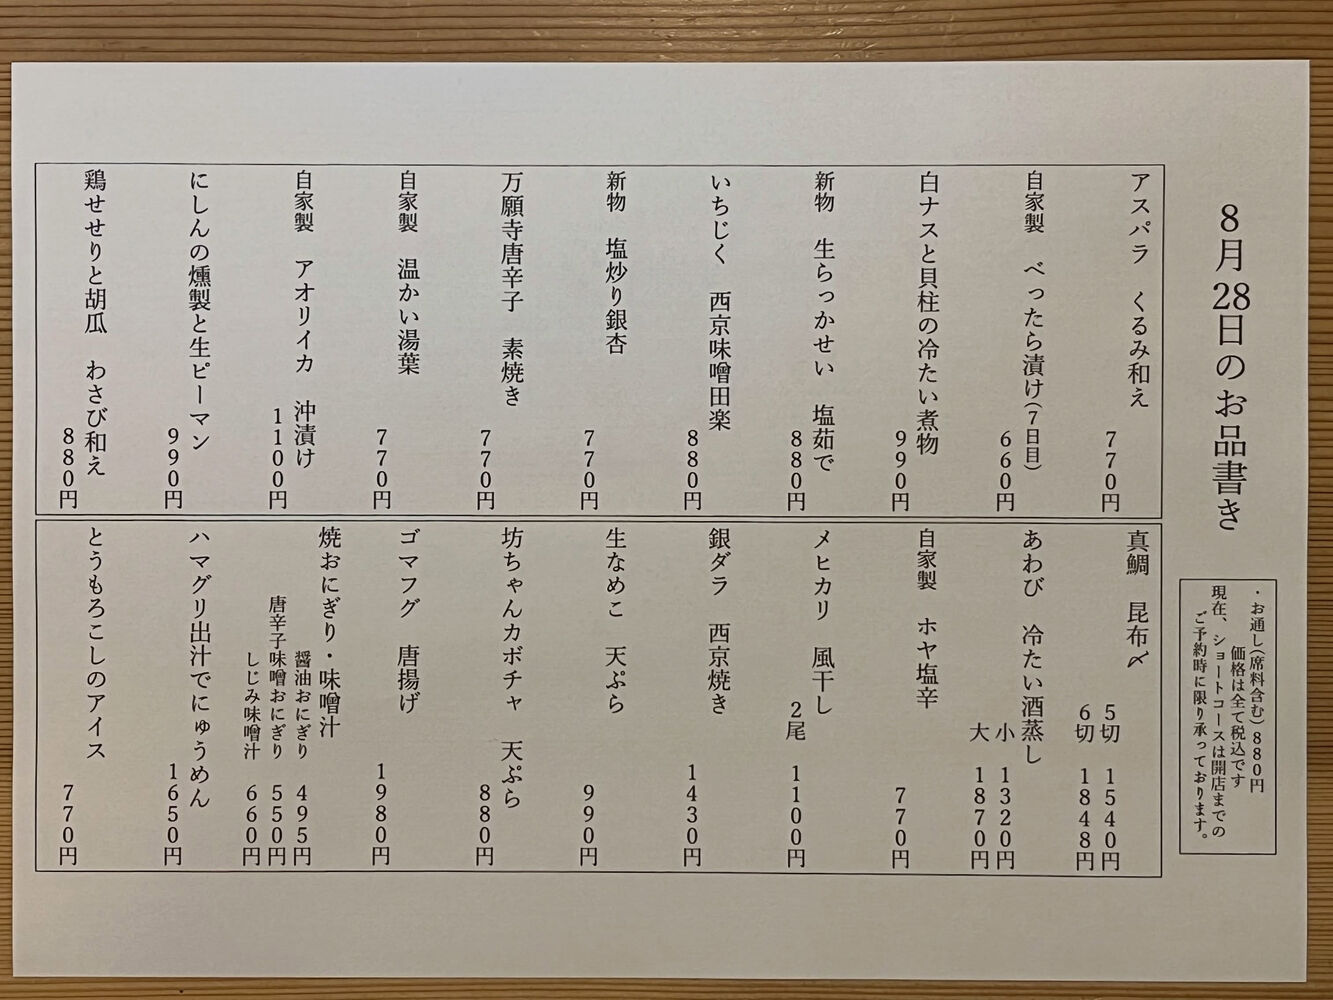 8月28日のお品書き
・お通し(席料含む)880円
価格は全て税込です
現在、ショートコースは開店までの
ご予約時に限り承っております。
アスパラ　くるみ和え
770円
自家製　べったら漬け(7日目)
660円
白ナスと貝柱の冷たい煮物
990円
新物　生らっかせい　塩茹で
880円
いちじく　西京味噌田楽
880円
新物　塩炒り銀杏
770円
万願寺唐辛子　素焼き
770円
自家製　温かい湯葉
770円
自家製　アオリイカ　沖漬け
1100円
にしんの燻製と生ピーマン
990円
鶏せせりと胡瓜　わさび和え
880円
真鯛　昆布〆
5切　1540円
6切　1848円
あわび　冷たい酒蒸し
小　1320円
大　1870円
自家製　ホヤ塩辛
770円
メヒカリ　風干し
2尾　1100円
銀ダラ　西京焼き
1430円
生なめこ　天ぷら
990円
坊ちゃんカボチャ　天ぷら
880円
ゴマフグ　唐揚げ
1980円
焼おにぎり・味噌汁
醤油おにぎり　495円
唐辛子味噌おにぎり　550円
しじみ味噌汁　660円
ハマグリ出汁でにゅうめん
1650円
とうもろこしのアイス
770円